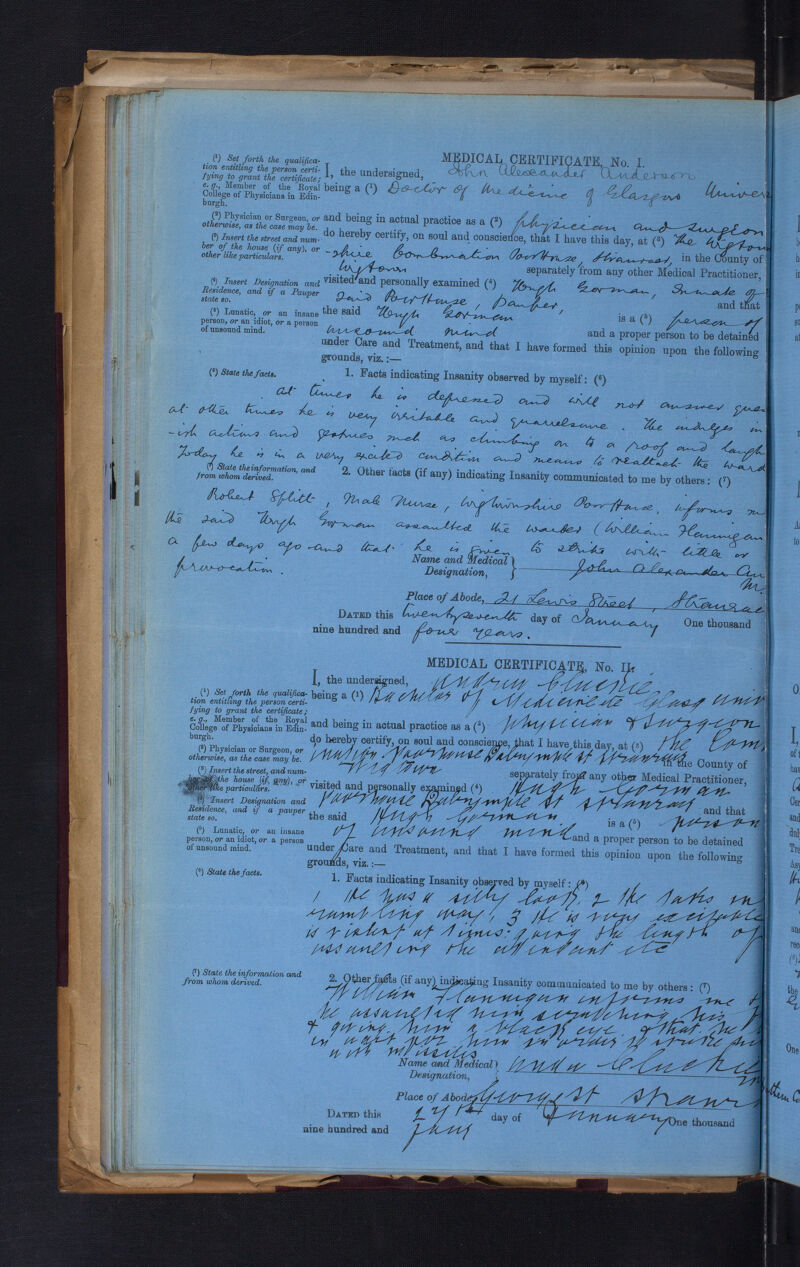 MEDICAL CERTIFICATE, No. I.
(¹) Set forth the qualifica-
tion entitling the person certi-
fying to grant the certificate;
e. g., Member of the Royal
College of Physicians in Edin-
burgh.
I, the undersigned, John Alexander Anderson
being a (¹) Doctor of Medicine of Glasgow Univer
(²) Physician or Surgeon, or
otherwise, as the case may be.
and being in actual practice as a (²) physician and surgeon
(³) Insert the street and num-
ber of the house (if any), or
other like particulars.
do hereby certify, on soul and conscience, that I have this day, at (³) the Wigton
-shire Combination Poorhouse, Stranraer, in the County of
Wigtown separately from any other Medical Practitioner,
(⁴) Insert Designation and
Residence, and if a Pauper
state so.
visited and personally examined (⁴) Hugh Gorman, Inmate of
said Poorhouse, Pauper, and that
(⁵) Lunatic, or an insane
person, or an idiot, or a person
of unsound mind.
the said Hugh Gorman is a (⁵) person of
unsound mind and a proper person to be detained
under Care and Treatment, and that I have formed this opinion upon the following
grounds, viz.:—
(⁶) State the facts.
1. Facts indicating Insanity observed by myself: (⁶)
At times he is depressed and will not answer ques
at other times he is very irritable and quarrelsome. He indulges in
-ish actions and gestures such as climbing on to a roof and laugh
Today he is in a very excited condition and means to reattack the ward
(⁷) State the information, and
from whom derived.
2. Other facts (if any) indicating Insanity communicated to me by others: (⁷)
Robert Splitt, Male Nurse, Wigtownshire Poor House, informs m
the said Hugh Gorman assaulted the warder (William Hannigan
a few days ago and that he is given to strike with little or
provocation.
Name and Medical
Designation, John Alexander An
M.
Place of Abode, 21 Lewis Street, Stranrae
DATED this twenty seventh day of January One thousand
nine hundred and four years.
MEDICAL CERTIFICATE, No. II.
(¹) Set forth the qualifica-
tion entitling the person certi-
fying to grant the certificate;
e. g., Member of the Royal
College of Physicians in Edin-
burgh.
I, the undersigned, Andrew Cluckie
being a (¹) Bachelor of Medicine etc Glasg Univ
and being in actual practice as a (²) Physician & Surgeon
(²) Physician or Surgeon, or
otherwise, as the case may be.
do hereby certify, on soul and conscience, that I have this day, at (³) the Com
bination Poorhouse Dalrymple St Stranraer in the County of
(³) Insert the street, and num-
ber of the house (if any), or
other like particulars.
Wigtown separately from any other Medical Practitioner,
visited and personally examined (⁴) Hugh Gorman
(⁴) Insert Designation and
Residence, and if a pauper
state so.
Poorhouse Dalrymple St Stranraer and that
the said Hugh Gorman is a (⁵) person
(⁵) Lunatic, or an insane
person, or an idiot, or a person
of unsound mind.
of unsound mind and a proper person to be detained
under Care and Treatment, and that I have formed this opinion upon the following
grounds, viz.:—
(⁶) State the facts.
1. Facts indicating Insanity observed by myself: (⁶)
1 He has a silly look, 2 He talks in
rambling way, 3 He is very excitable
is violent at times: going the length of
assaulting the attendant etc
(⁷) State the information and
from whom derived.
2. Other facts (if any) indicating Insanity communicated to me by others: (⁷)
William Hannigan informs me
he assaulted him scratching his
& giving him a black eye & that he
in wait for him in order to strike
with missiles
Name and Medical
Designation, Andw Cluckie
Place of Abode, George St Stranr
DATED this 27th day of January One thousand
nine hundred and four